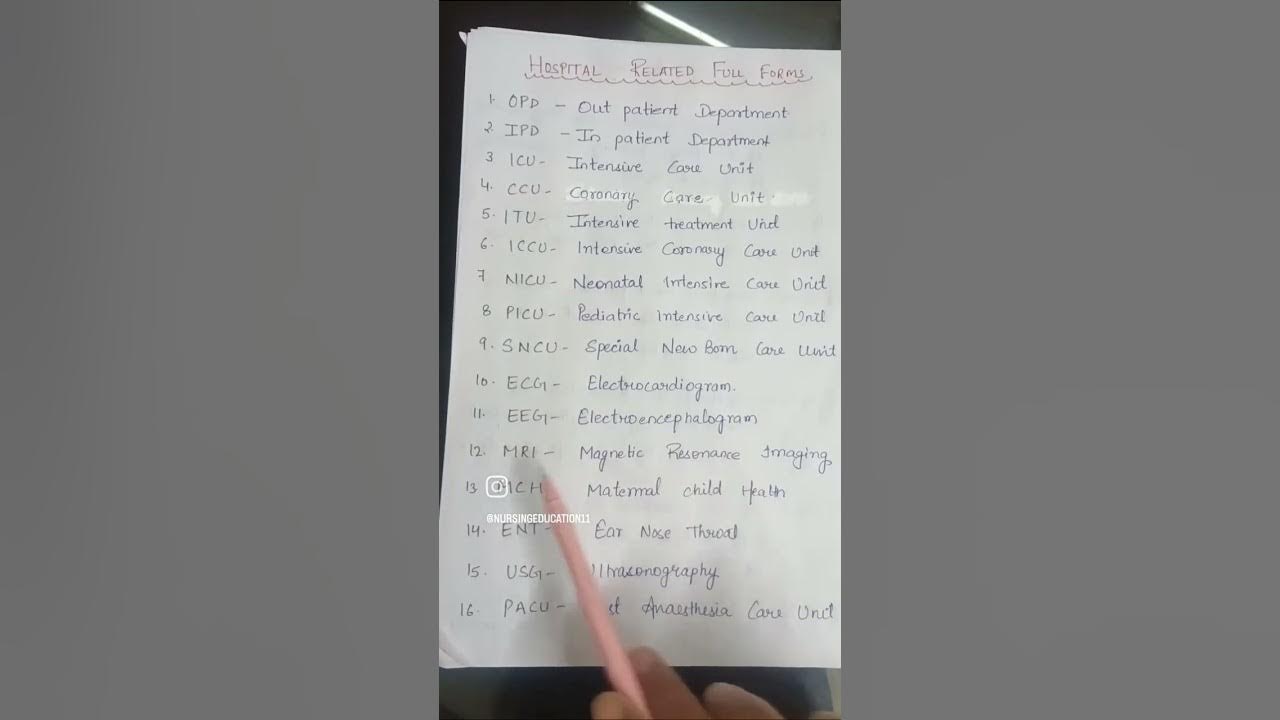 HOSPITAL RELATED FULL FORMS
1. OPD - Out patient Department
2. IPD - In patient Department
3 ICU - Intensive Care Unit
4. CCU - Coronary Care Unit
5. ITU - Intensive treatment Unit
6. ICCU - Intensive Coronary Care Unit
7 NICU - Neonatal Intensive Care Unit
8 PICU - Pediatric Intensive Care Unit
9. SNCU - Special New Born Care Unit
10. ECG - Electrocardiogram.
11. EEG - Electroencephalogram
12. MRI - Magnetic Resonance Imaging
13 MCH Maternal child Health
@NURSINGEDUCATION11
14. ENT - Ear Nose Throat
15. USG - Ultrasonography
16. PACU - Anaesthesia Care Unit